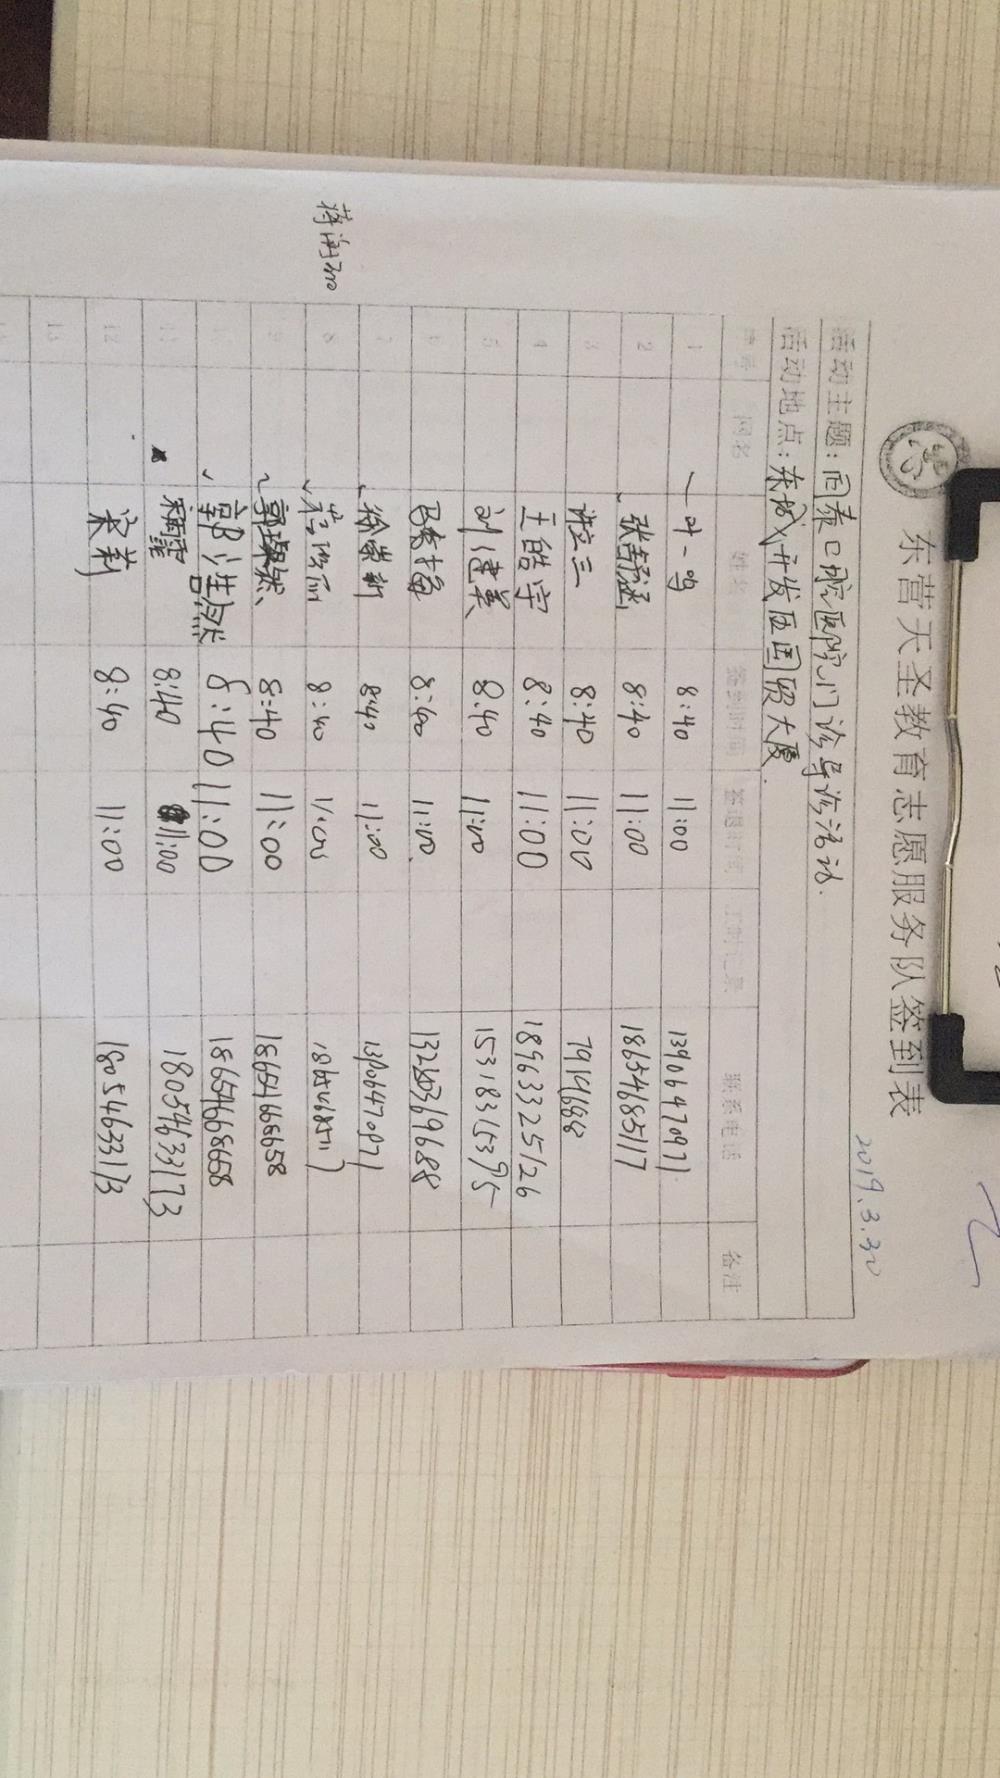 东营天圣教育志愿服务队签到表
2019.3.30
活动主题：同泰口腔医院门诊导诊活动.
活动地点：东城开发区国贸大厦.
序号 网名 姓名 签到时间 签退时间 工时记录 联系电话 备注
1 叶一鸣 8:40 11:00 13906470971
2 8:40 11:00 18654685117
3 许立三 8:40 11:00 7919688
4 王皓宇 8:40 11:00 18963325126
5 刘建冀 8:40 11:00 15318315395
6 马冬梅 8:40 11:00
7 徐崇新 8:40 11:00 13906470971
8 8:40
9 郭璨然 8:40 11:00 18654668658
10 郭浩然 8:40 11:00 18654668658
11 8:40 11:00 18054633173
12 梁莉 8:40 11:00 18054633173
13